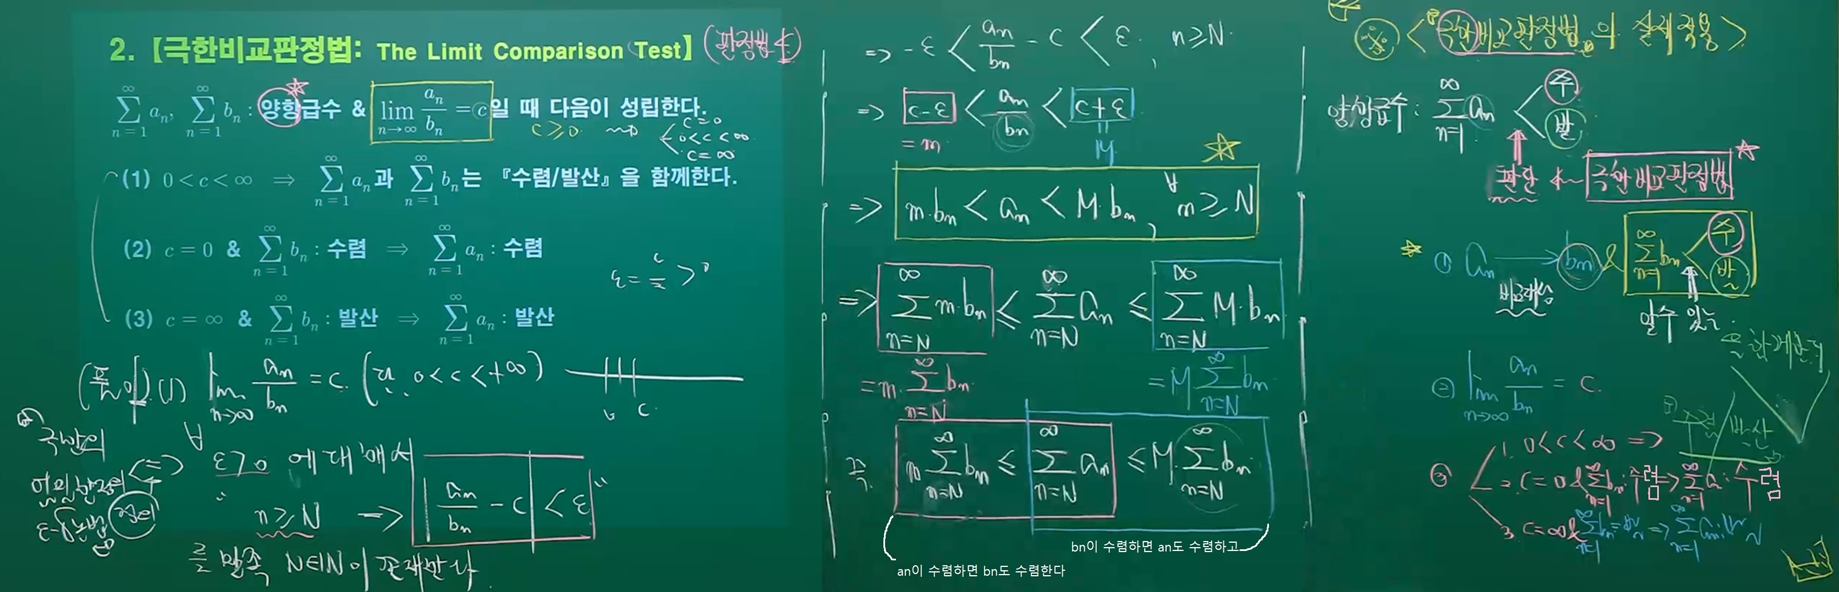 2. 【극한비교판정법: The Limit Comparison Test】 (판정법 4)
\sum_{n=1}^{\infty} a_n, \sum_{n=1}^{\infty} b_n : 양항급수 & \lim_{n→∞} \frac{a_n}{b_n} = c 일 때 다음이 성립한다.
c ≥ 0 ⇝ c = 0
0 < c < ∞
c = ∞
(1) 0 < c < ∞ ⇒ \sum_{n=1}^{\infty} a_n 과 \sum_{n=1}^{\infty} b_n 는 『수렴/발산』을 함께한다.
(2) c = 0 & \sum_{n=1}^{\infty} b_n : 수렴 ⇒ \sum_{n=1}^{\infty} a_n : 수렴
ε = \frac{c}{2} > 0
(3) c = ∞ & \sum_{n=1}^{\infty} b_n : 발산 ⇒ \sum_{n=1}^{\infty} a_n : 발산
(풀이) (1) \lim_{n→∞} \frac{a_n}{b_n} = c. (단, 0 < c < +∞)
극한의
정의
⟺ ∀ ε > 0 에 대해서
" n ≥ N → | \frac{a_n}{b_n} - c | < ε "
를 만족 N∈ℕ이 존재한다
⇒ -ε < \frac{a_n}{b_n} - c < ε, n ≥ N.
⇒ c-ε < \frac{a_n}{b_n} < c+ε
= m
M
⇒ m·b_n < a_n < M·b_n, ∀ n ≥ N
⇒ \sum_{n=N}^{\infty} m·b_n ≤ \sum_{n=N}^{\infty} a_n ≤ \sum_{n=N}^{\infty} M·b_n
= m·\sum_{n=N}^{\infty} b_n
= M \sum_{n=N}^{\infty} b_n
즉. m \sum_{n=N}^{\infty} b_n ≤ \sum_{n=N}^{\infty} a_n ≤ M·\sum_{n=N}^{\infty} b_n
bn이 수렴하면 an도 수렴하고
an이 수렴하면 bn도 수렴한다
< 극한비교판정법의 실제적용 >
양항급수 : \sum_{n=1}^{\infty} a_n < 수
발
판단 ← 극한비교판정법
① a_n → b_n & \sum_{n=1}^{\infty} b_n < 수
발
비교대상
알수 있는
② \lim_{n→∞} \frac{a_n}{b_n} = c.
③ 1. 0 < c < ∞ ⇒
2. c = 0 & \sum_{n=1}^{\infty} b_n : 수렴 ⇒ \sum_{n=1}^{\infty} a_n : 수렴
3. c = ∞ & \sum_{n=1}^{\infty} b_n ⇒ \sum_{n=1}^{\infty} a_n